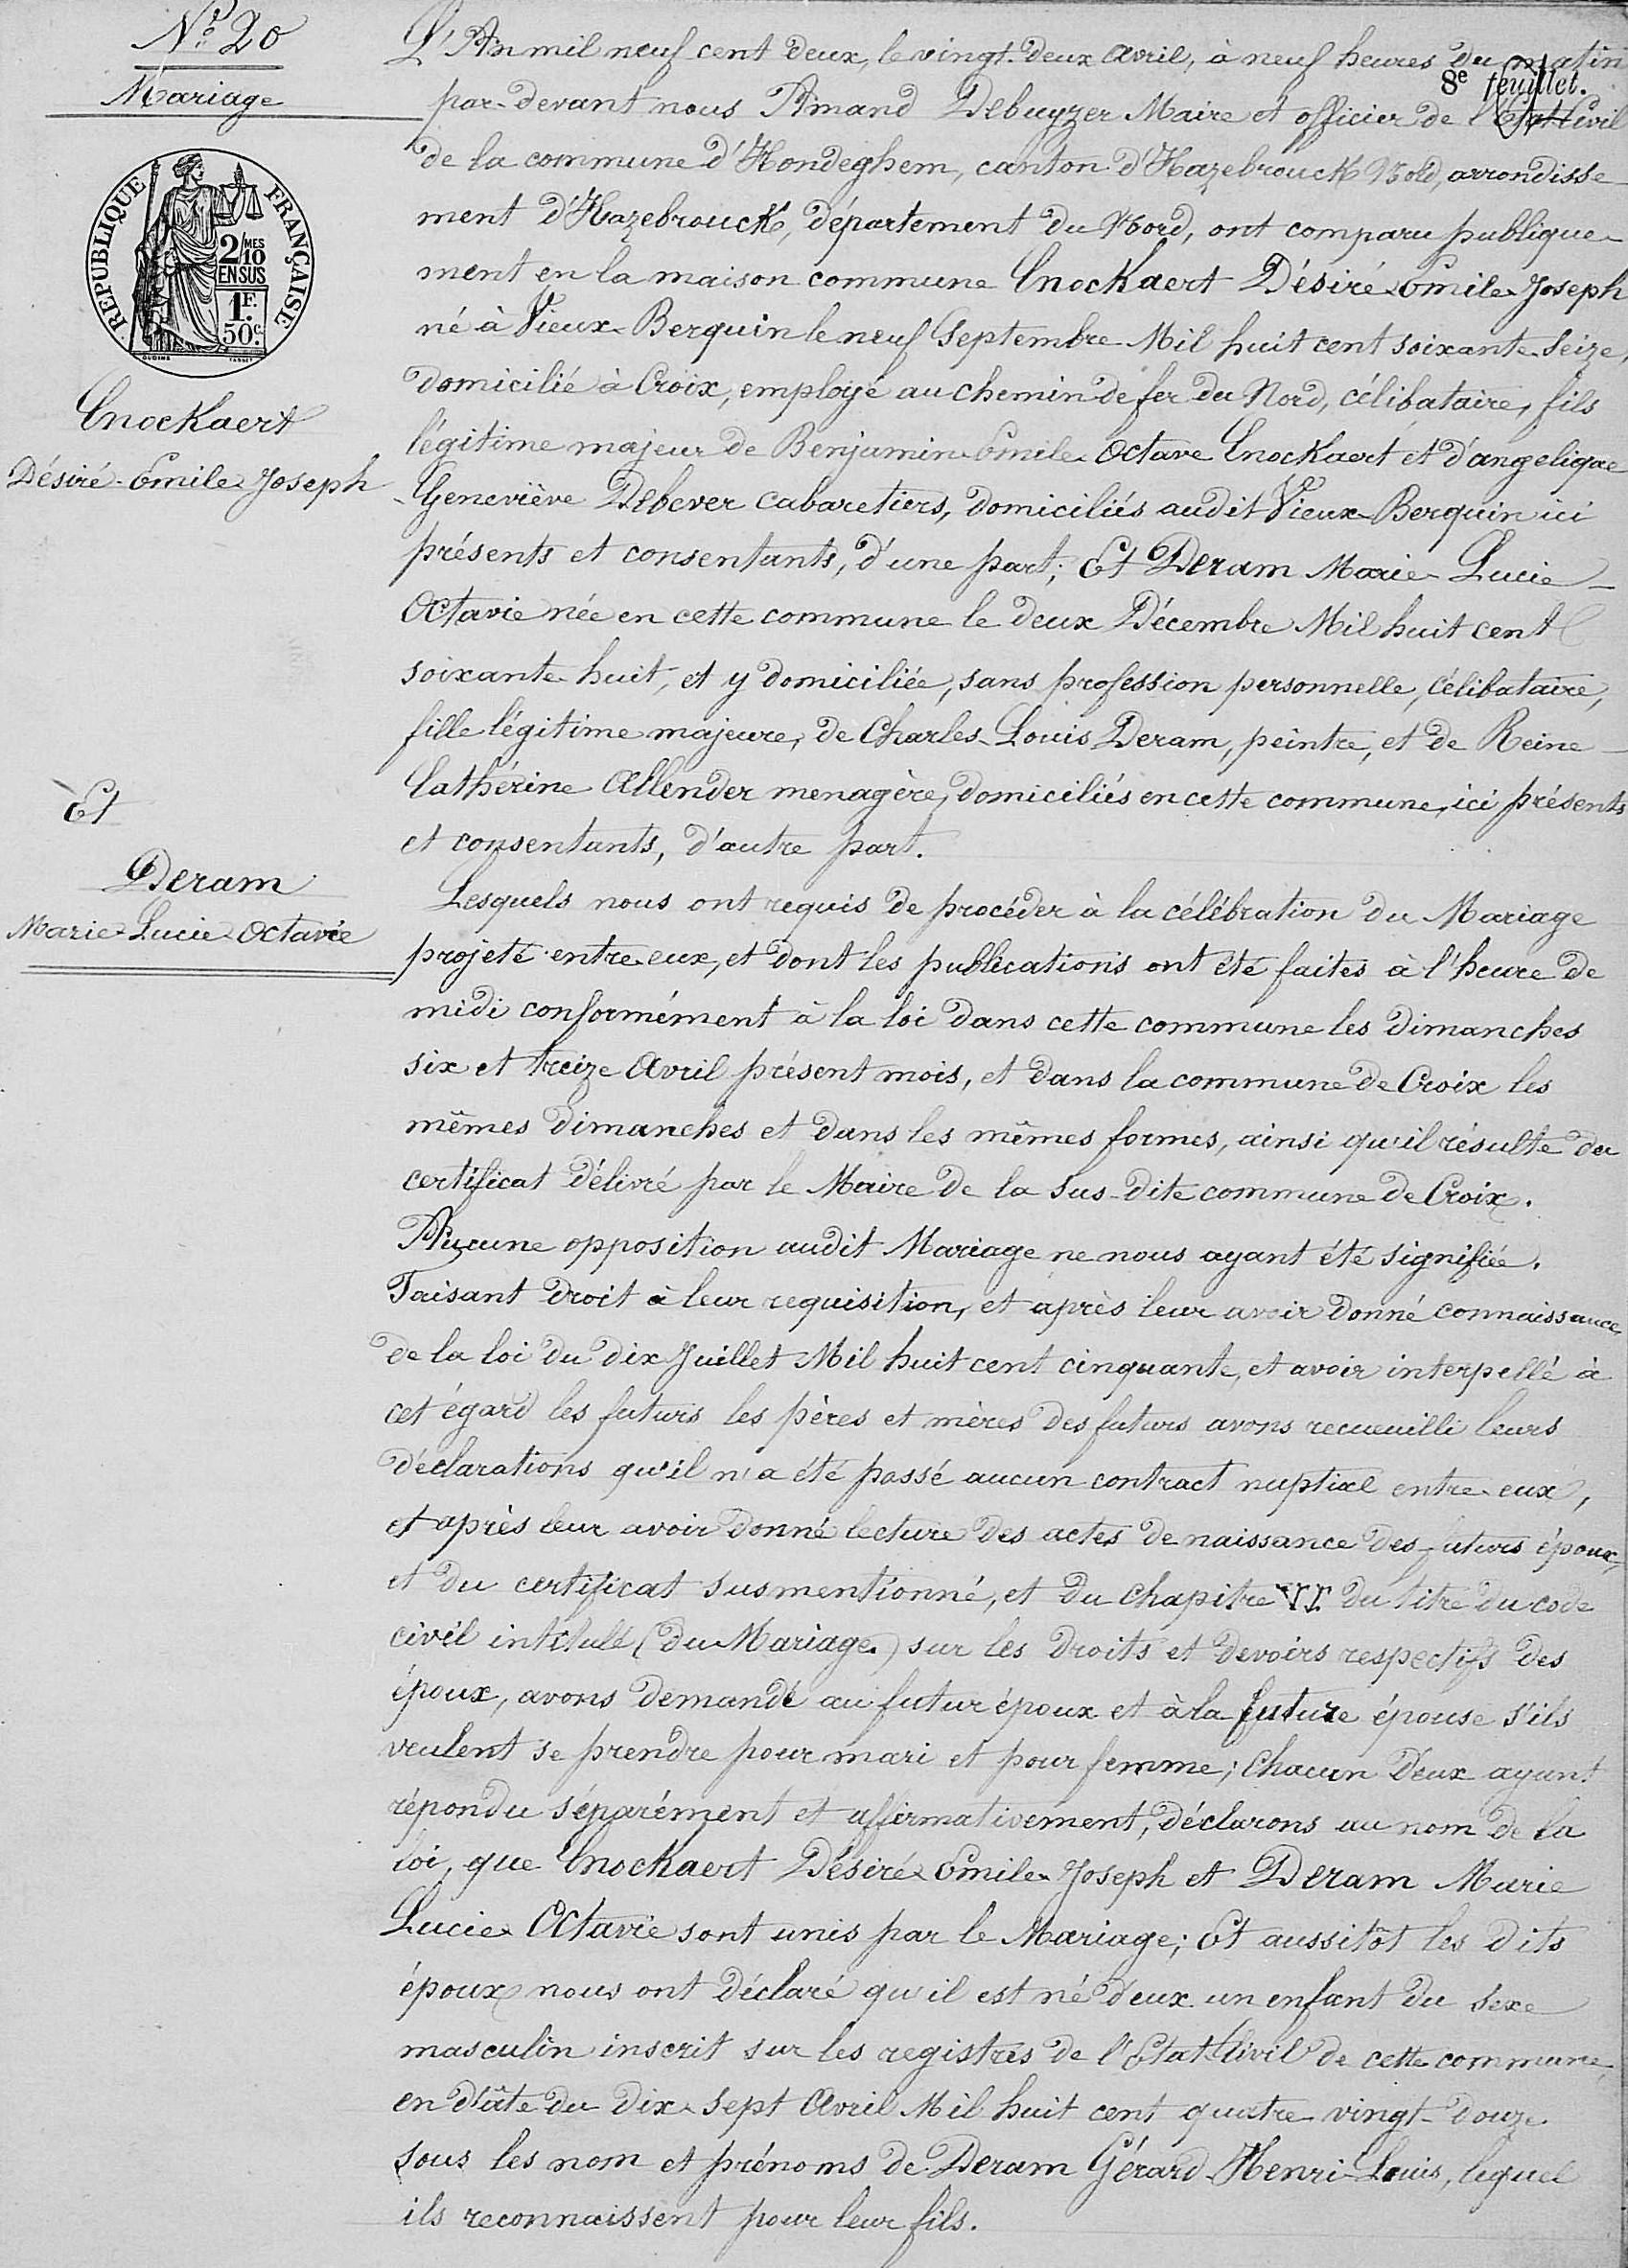 Nº 20
Mariage
RÉPUBLIQUE FRANÇAISE
2/10 MES
EN SUS
1F.
50c.
Cnockaert
Désiré Emile Joseph
Et
Deram
Marie Lucie Octavie
8e feuillet.
L'An mil neuf cent deux, le vingt-deux avril, à neuf heures du matin
par-devant nous Amand Debuyzer Maire et officier de l'Etat Civil
de la commune d'Hondeghem, canton d'Hazebrouck Nord, arrondisse-
ment d'Hazebrouck, département du Nord, ont comparu publique-
ment en la maison commune Cnockaert Désiré Emile Joseph
né à Vieux-Berquin le neuf Septembre Mil huit cent soixante-Seize,
domicilié à Croix, employé au chemin de fer du Nord, célibataire, fils
légitime majeur de Benjamin Emile Octave Cnockaert et d'angelique
Geneviève Debever cabaretiers, domiciliés audit Vieux-Berquin ici
présents et consentants, d'une part; Et Deram Marie Lucie
Octavie née en cette commune le deux Décembre Mil huit cent
soixante-huit, et y domiciliée, sans profession personnelle, célibataire,
fille légitime majeure, de Charles-Louis Deram, peintre, et de Reine
Cathérine Allender menagère, domiciliés en cette commune, ici présents
et consentants, d'autre part.
Lesquels nous ont requis de procéder à la célébration du Mariage
projeté entre eux, et dont les publications ont été faites à l'heure de
midi conformément à la loi dans cette commune les dimanches
six et treize Avril présent mois, et dans la commune de Croix les
mêmes dimanches et dans les mêmes formes, ainsi qu'il résulte du
certificat délivré par le Maire de la sus-dite commune de Croix.
Aucune opposition audit Mariage ne nous ayant été signifiée.
Faisant droit à leur requisition, et après leur avoir donné connaissance
de la loi du dix Juillet Mil huit cent cinquante, et avoir interpellé à
cet égard les futurs les pères et mères des futurs avons recueuilli leurs
déclarations qu'il n'a été passé aucun contract nuptial entre eux,
et après leur avoir donné lecture des actes de naissance des futurs époux,
et du certificat susmentionné, et du chapitre VI du titre du code
civil intitulé (du Mariage) sur les droits et devoirs respectifs des
époux, avons demandé au futur époux et à la future épouse s'ils
veulent se prendre pour mari et pour femme; Chacun D'eux ayant
répondu séparément et affirmativement, déclarons au nom de la
loi, que Cnockaert Désiré Emile Joseph et Deram Marie
Lucie Octavie sont unis par le Mariage; Et aussitôt les dits
époux nous ont déclaré qu'il est né d'eux un enfant du sexe
masculin inscrit sur les registres de l'Etat-Civil de cette commune,
en dâte du dix-sept Avril Mil huit cent quatre vingt-douze
sous les nom et prénoms de Deram Gérard-Henri-Louis, lequel
ils reconnaissent pour leur fils.